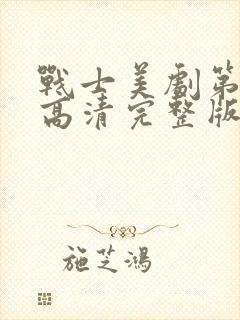 戰士美劇第
高清完整版
施芝鴻